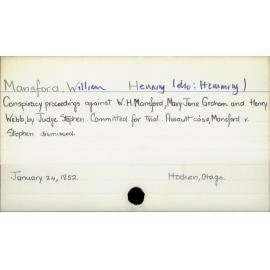 Mansford, William Henry (also: Hemming)
Conspiracy proceedings against W.H. Mansford, Mary Jane Graham and Henry
Webb, by Judge Stephen. Committed for trial. Assault case, Mansford v.
Stephen dismissed.
January 24, 1852. Hocken, Otago.